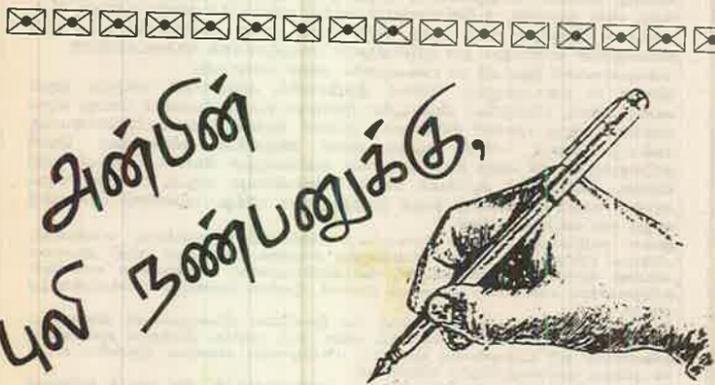 அன்பின்
புலி நண்பனுக்கு,